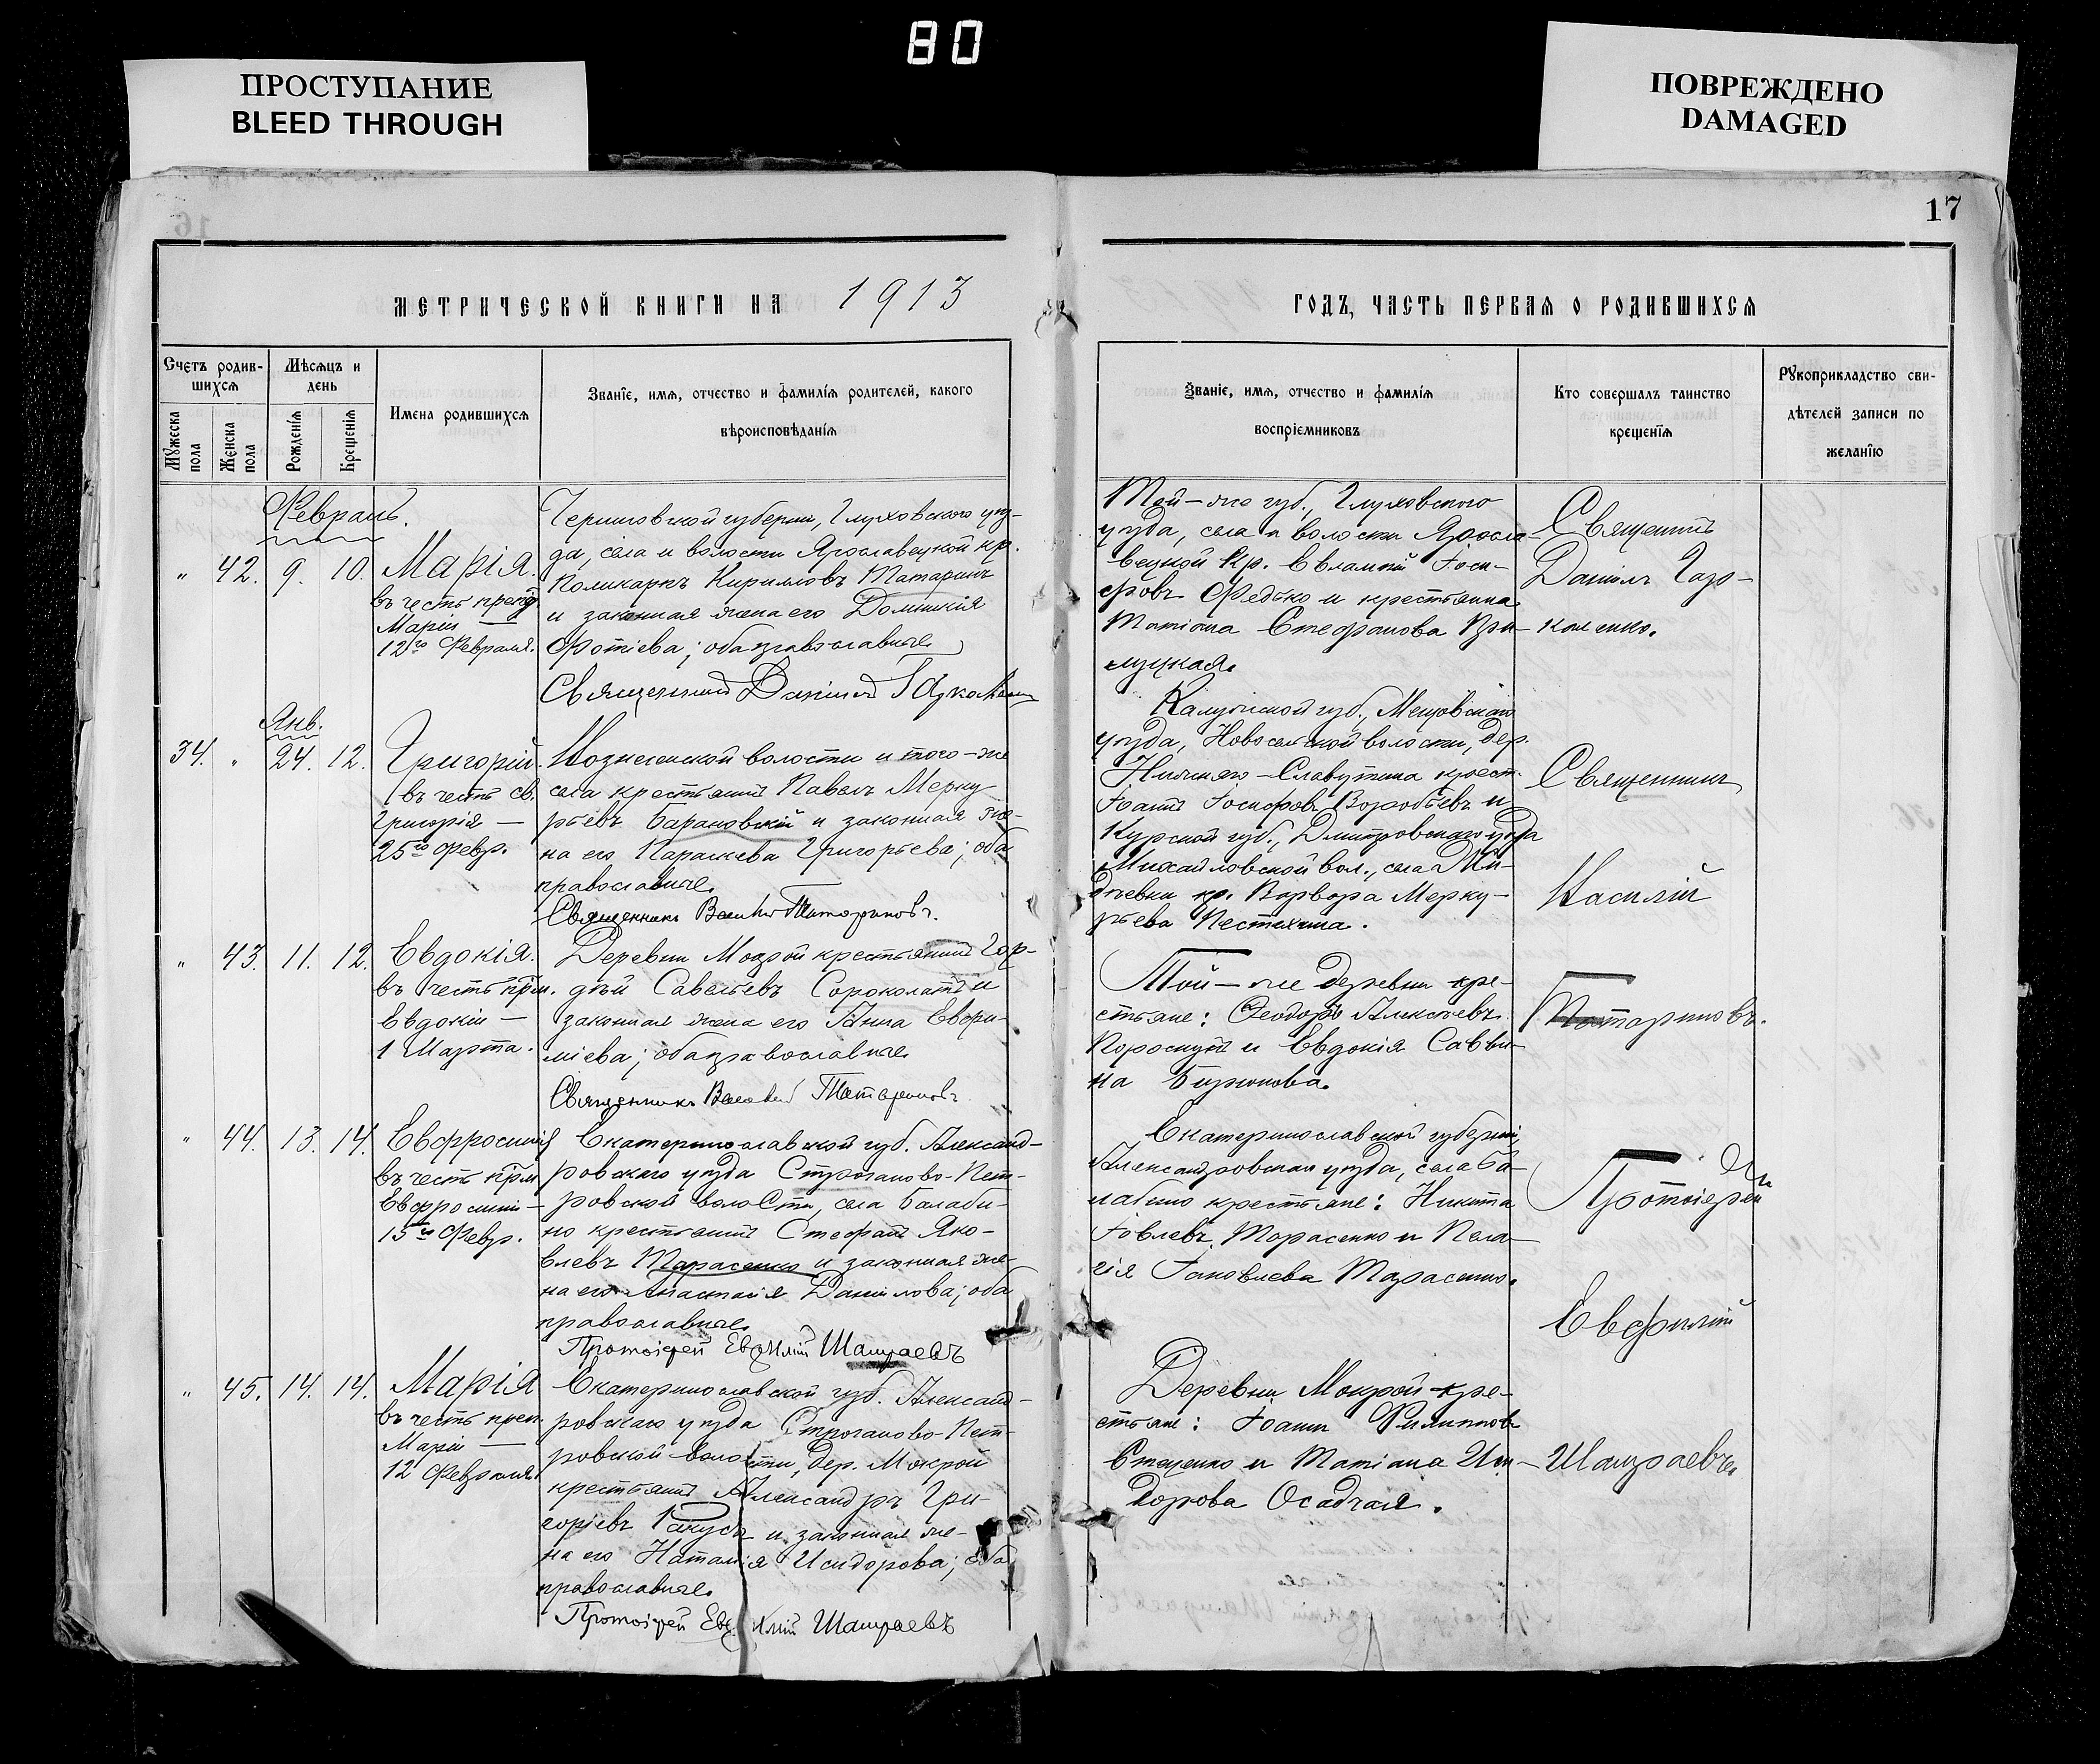 80
ПРОСТУПАНИЕ
BLEED THROUGH
ПОВРЕЖДЕНО
DAMAGED
17
МЕТРИЧЕСКОЙ КНИГИ НА 1913
ГОДЪ, ЧАСТЬ ПЕРВАЯ О РОДИВШИХСЯ
Счетъ родив-
шихся
Мужеска
пола
Женска
пола
Мѣсяцъ и
день
Рожденія
Крещенія
Имена родившихся
Званіе, имя, отчество и фамилія родителей, какого
вѣроисповѣданія
Званіе, имя, отчество и фамилія
воспріемниковъ
Кто совершалъ таинство
крещенія
Рукоприкладство сви-
дѣтелей записи по
желанію
Февраль.
" 42. 9. 10.
Марія.
въ честь преп.
Маріи —
12го Февраля.
Черниговской губерніи, Глуховского уѣз-
да, села и волости Ярославецкой кр.
Поликарпъ Кирилловъ Татаринъ
и законная жена его Домникія
Фотіева; оба православные.
Священникъ Даніилъ
Той-же губ., Глуховского
уѣзда, села и волости Яросла-
вецкой кр. Евлампій Іоси-
фовъ Федько и крестьянка
Татіана Стефанова При-
луцкая.
Священникъ
Даніилъ
Янв.
34. " 24. 12.
Григорій.
въ честь св.
Григорія —
25го Февр.
Вознесенской волости и того-же
села крестьянинъ Павелъ Мерку-
рьевъ Барановскій и законная же-
на его Параскева Григорьева; оба
православные.
Священникъ Татариновъ.
Калужской губ., Мещовскаго
уѣзда, Новосельской волости, дер.
Славутина крест.
Іоаннъ Іосифовъ Воробьевъ и
Курской губ., Дмитровскаго уѣзда
Михайловской вол., села
кр. Варвара Мерку-
рьева Пестяхина.
Священникъ
Василій
Татариновъ.
" 43. 11. 12.
Евдокія.
въ честь прм.
Евдокіи —
1 Марта.
Деревни Мокрой крестьянинъ Гор-
дѣй Савельевъ Сороколатъ и
законная жена его Анна Евфи-
міева; оба православные.
Священникъ Василій Татариновъ
Той-же деревни кре-
стьяне: Ѳеодоръ Алексѣевъ
и Евдокія Савви-
на Бирюкова.
" 44. 13. 14.
Евфросинія
въ честь прм
Евфросиніи —
15го Февр.
Екатеринославской губ. Александ-
ровскаго уѣзда Строганово-Пет-
ровской волости, села Балаби-
но крестьянинъ Стефанъ Яко-
влевъ Тарасенко и законная же-
на его Анастасія Даніилова; оба
православные.
Протоіерей Евфимій Шамраевъ
Екатеринославской губерніи,
Александровскаго уѣзда, села Ба-
лабино крестьяне: Никита
Іовлевъ Тарасенко и Пела-
гія Іаковлева Тарасенко.
Протоіерей
Евфимій
Шамраевъ.
" 45. 14. 14.
Марія
въ честь преп.
Маріи —
12 Февраля.
Екатеринославской губ. Александ-
ровскаго уѣзда Строганово-Пет-
ровской волости, дер. Мокрой
крестьянинъ Александръ Гри-
горіевъ и законная же-
на его Наталія Исидорова; оба
православные.
Протоіерей Евфимій Шамраевъ
Деревни Мокрой кре-
стьяне: Іоаннъ Филипповъ
Стеценко и Татіана Иси-
дорова Осадчая.